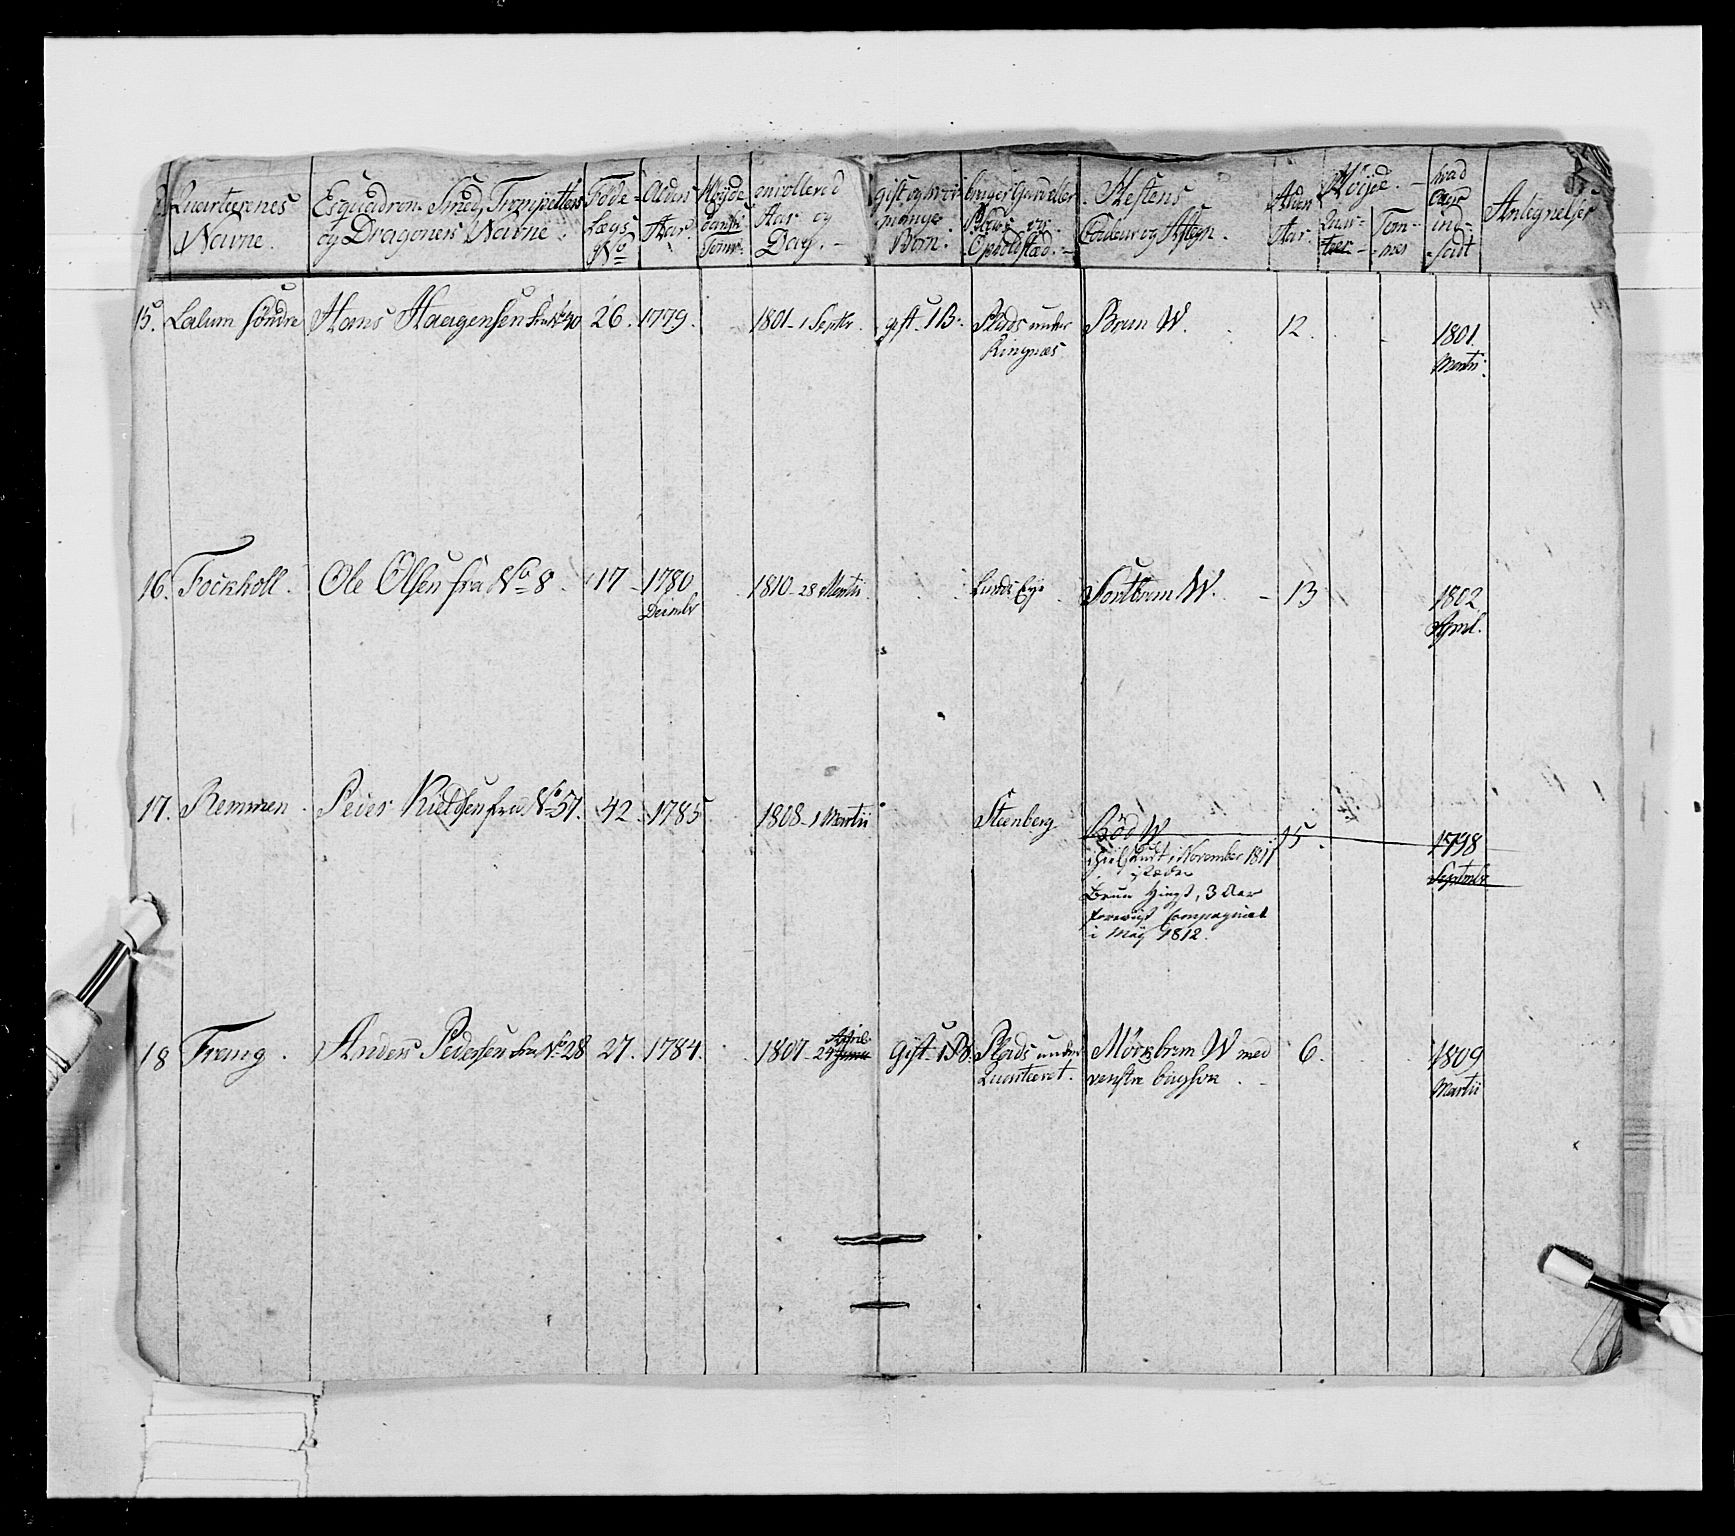 Quarterenes Navne.
Esquadron Smed, Trompetters og Dragoners Navne.
Føde Lægs No
Alders Aar.
Høyde danske Tomr.
enrollered Aar og Dag.
gift og hvor mange Børn.
Plads og Opholdsted.
Hestens Couleur og Aftegn.
Alder Aar.
Høyde.
Quarteer
Tommer
hvad Aar indsadt
Antegnelser
15. Lalum søndre Hans Haagensen fra No 40 26. 1779. 1801 - 1 Septr. gift. 1 B. Plads under Brun W. 12. 1801.
Ringnæs Martii.
16. Fockholl. Ole Olsen fra No 8. 17 1780 1810 - 28 Martii. Sortbrun W. 13 1802
Decembr April.
17. Remmen. Peder fra No 57. 42 1785 1808 - 1 Martii Steenberg Rød W 15. 1798
Septembr
i November 1811
i stæden
Brun Hingst, 3 Aar
forevist Compagniet
i Maij 1812.
April
18 Frang. Anders Pedersen fra No 28 27. 1784. 1807 - 24 Junii Gift. 1 B. Plads under Mørkbrun W med 6. 1809
Quarteeret. venstre bagfod. Martii